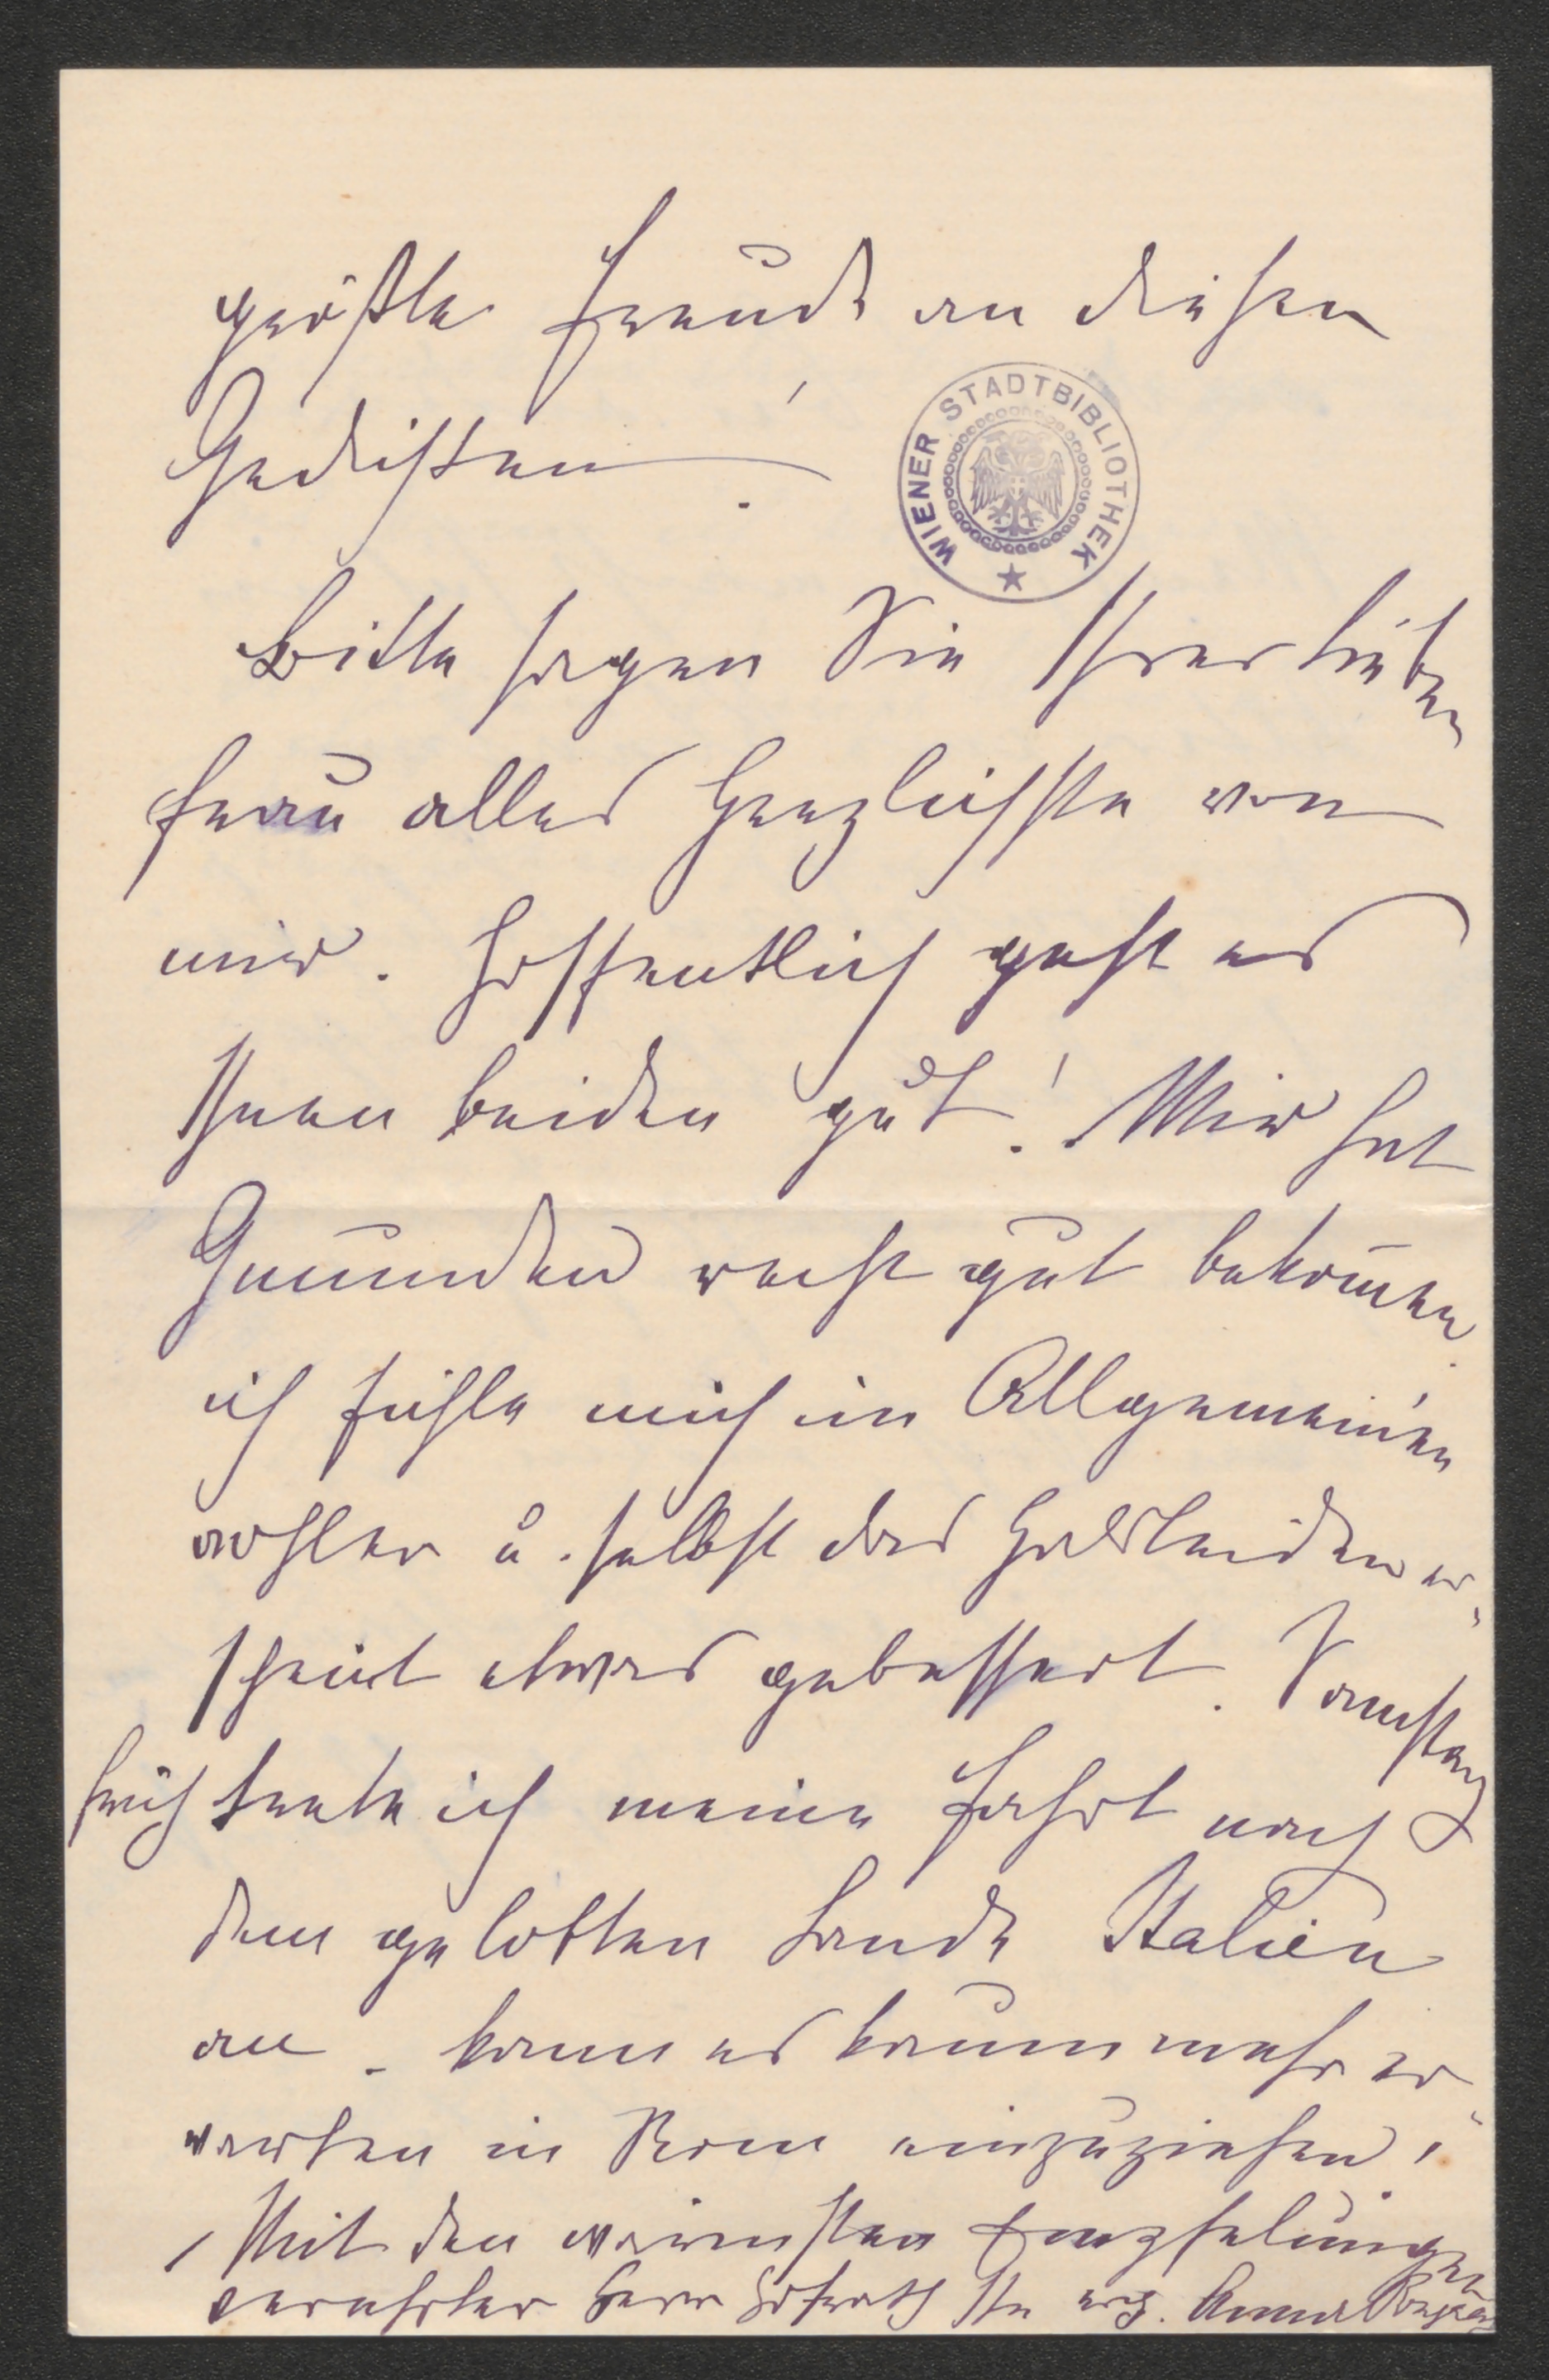 größte Freude an diesen
Gedichten!
WIENER STADTBIBLIOTHEK
Bitte sagen Sie Ihrer lieben
Frau alles Herzlichste von
mir. Hoffentlich geht es
Ihnen beiden gut! Mir hat
Gmunden recht gut bekom̅en.
ich fühle mich im Allgemeinen
wohler u. selbst das Halsleiden er-
scheint etwas gebessert. Samstag
früh trete ich meine Fahrt nach
dem gelobten Lande Italien
an. kann es kaum mehr er-
warten in Rom einzuziehen!
Mit den wärmsten Empfelungen
verehrter Herr Hofrath Ihr erg.